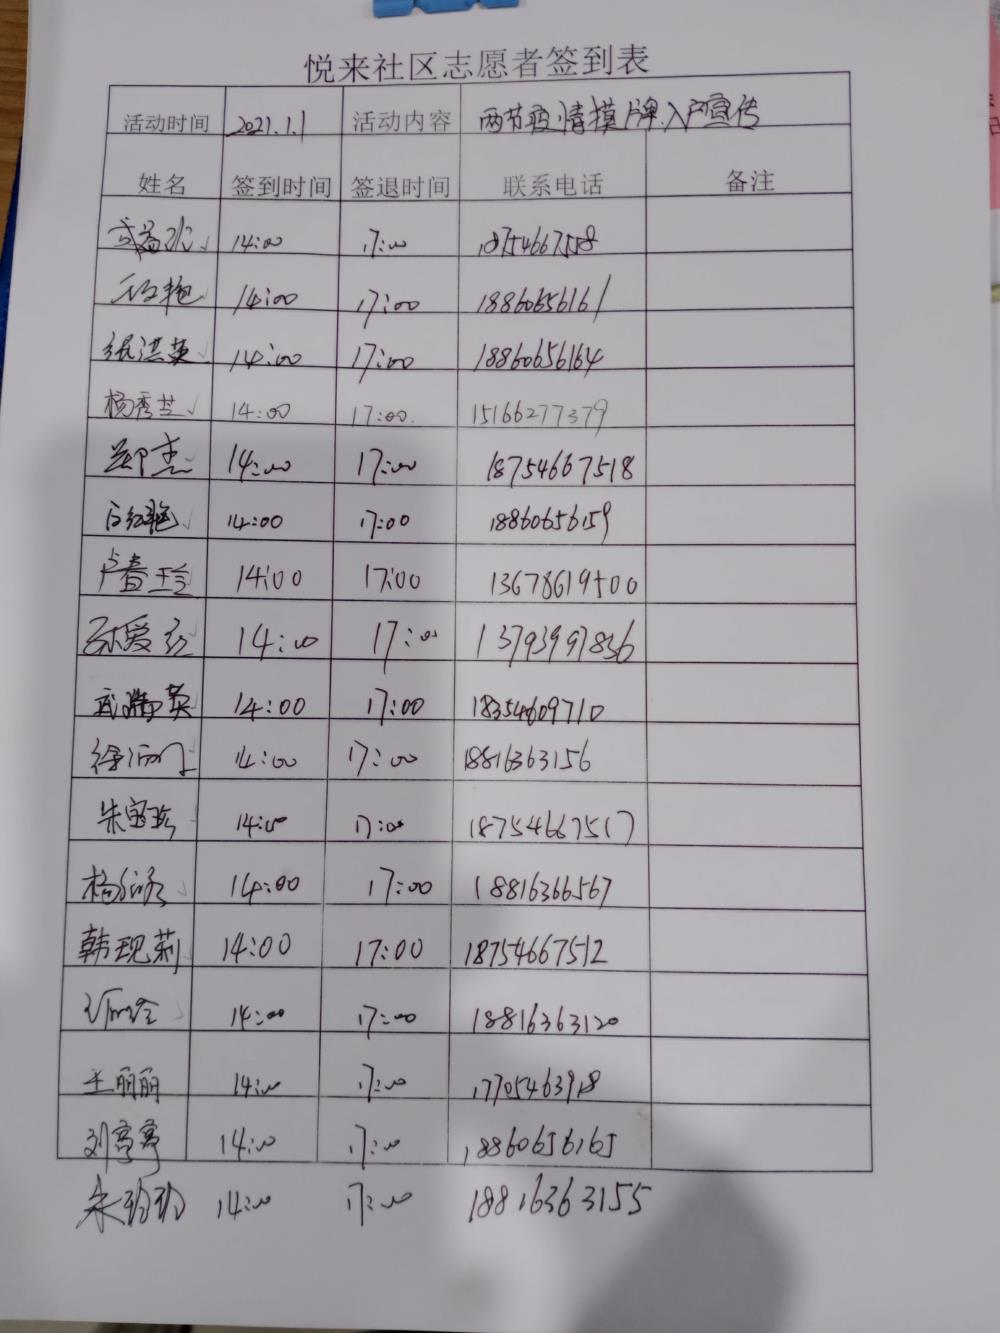 悦来社区志愿者签到表
活动时间 2021.1.1 活动内容 两节疫情摸牌入户宣传
姓名 签到时间 签退时间 联系电话 备注
14:00 17:00 18754667558
14:00 17:00 18860656161
张洪英 14:00 17:00 18860656164
杨秀芝 14:00 17:00. 15166277379
郑杰 14:00 17:00 18754667518
白红艳 14:00 17:00 18860656159
卢春玲 14:00 17:00 13678619500
孙爱 14:00 17:00 13793997836
武瑞英 14:00 17:00 18354609710
徐 14:00 17:00 18816363156
朱宝珍 14:00 17:00 18754667517
杨 14:00 17:00 18816366567
韩现莉 14:00 17:00 18754667512
14:00 17:00 18816363120
王丽丽 14:00 17:00
刘亭亭 14:00 17:00 18860656165
朱玲玲 14:00 17:00 18816363155